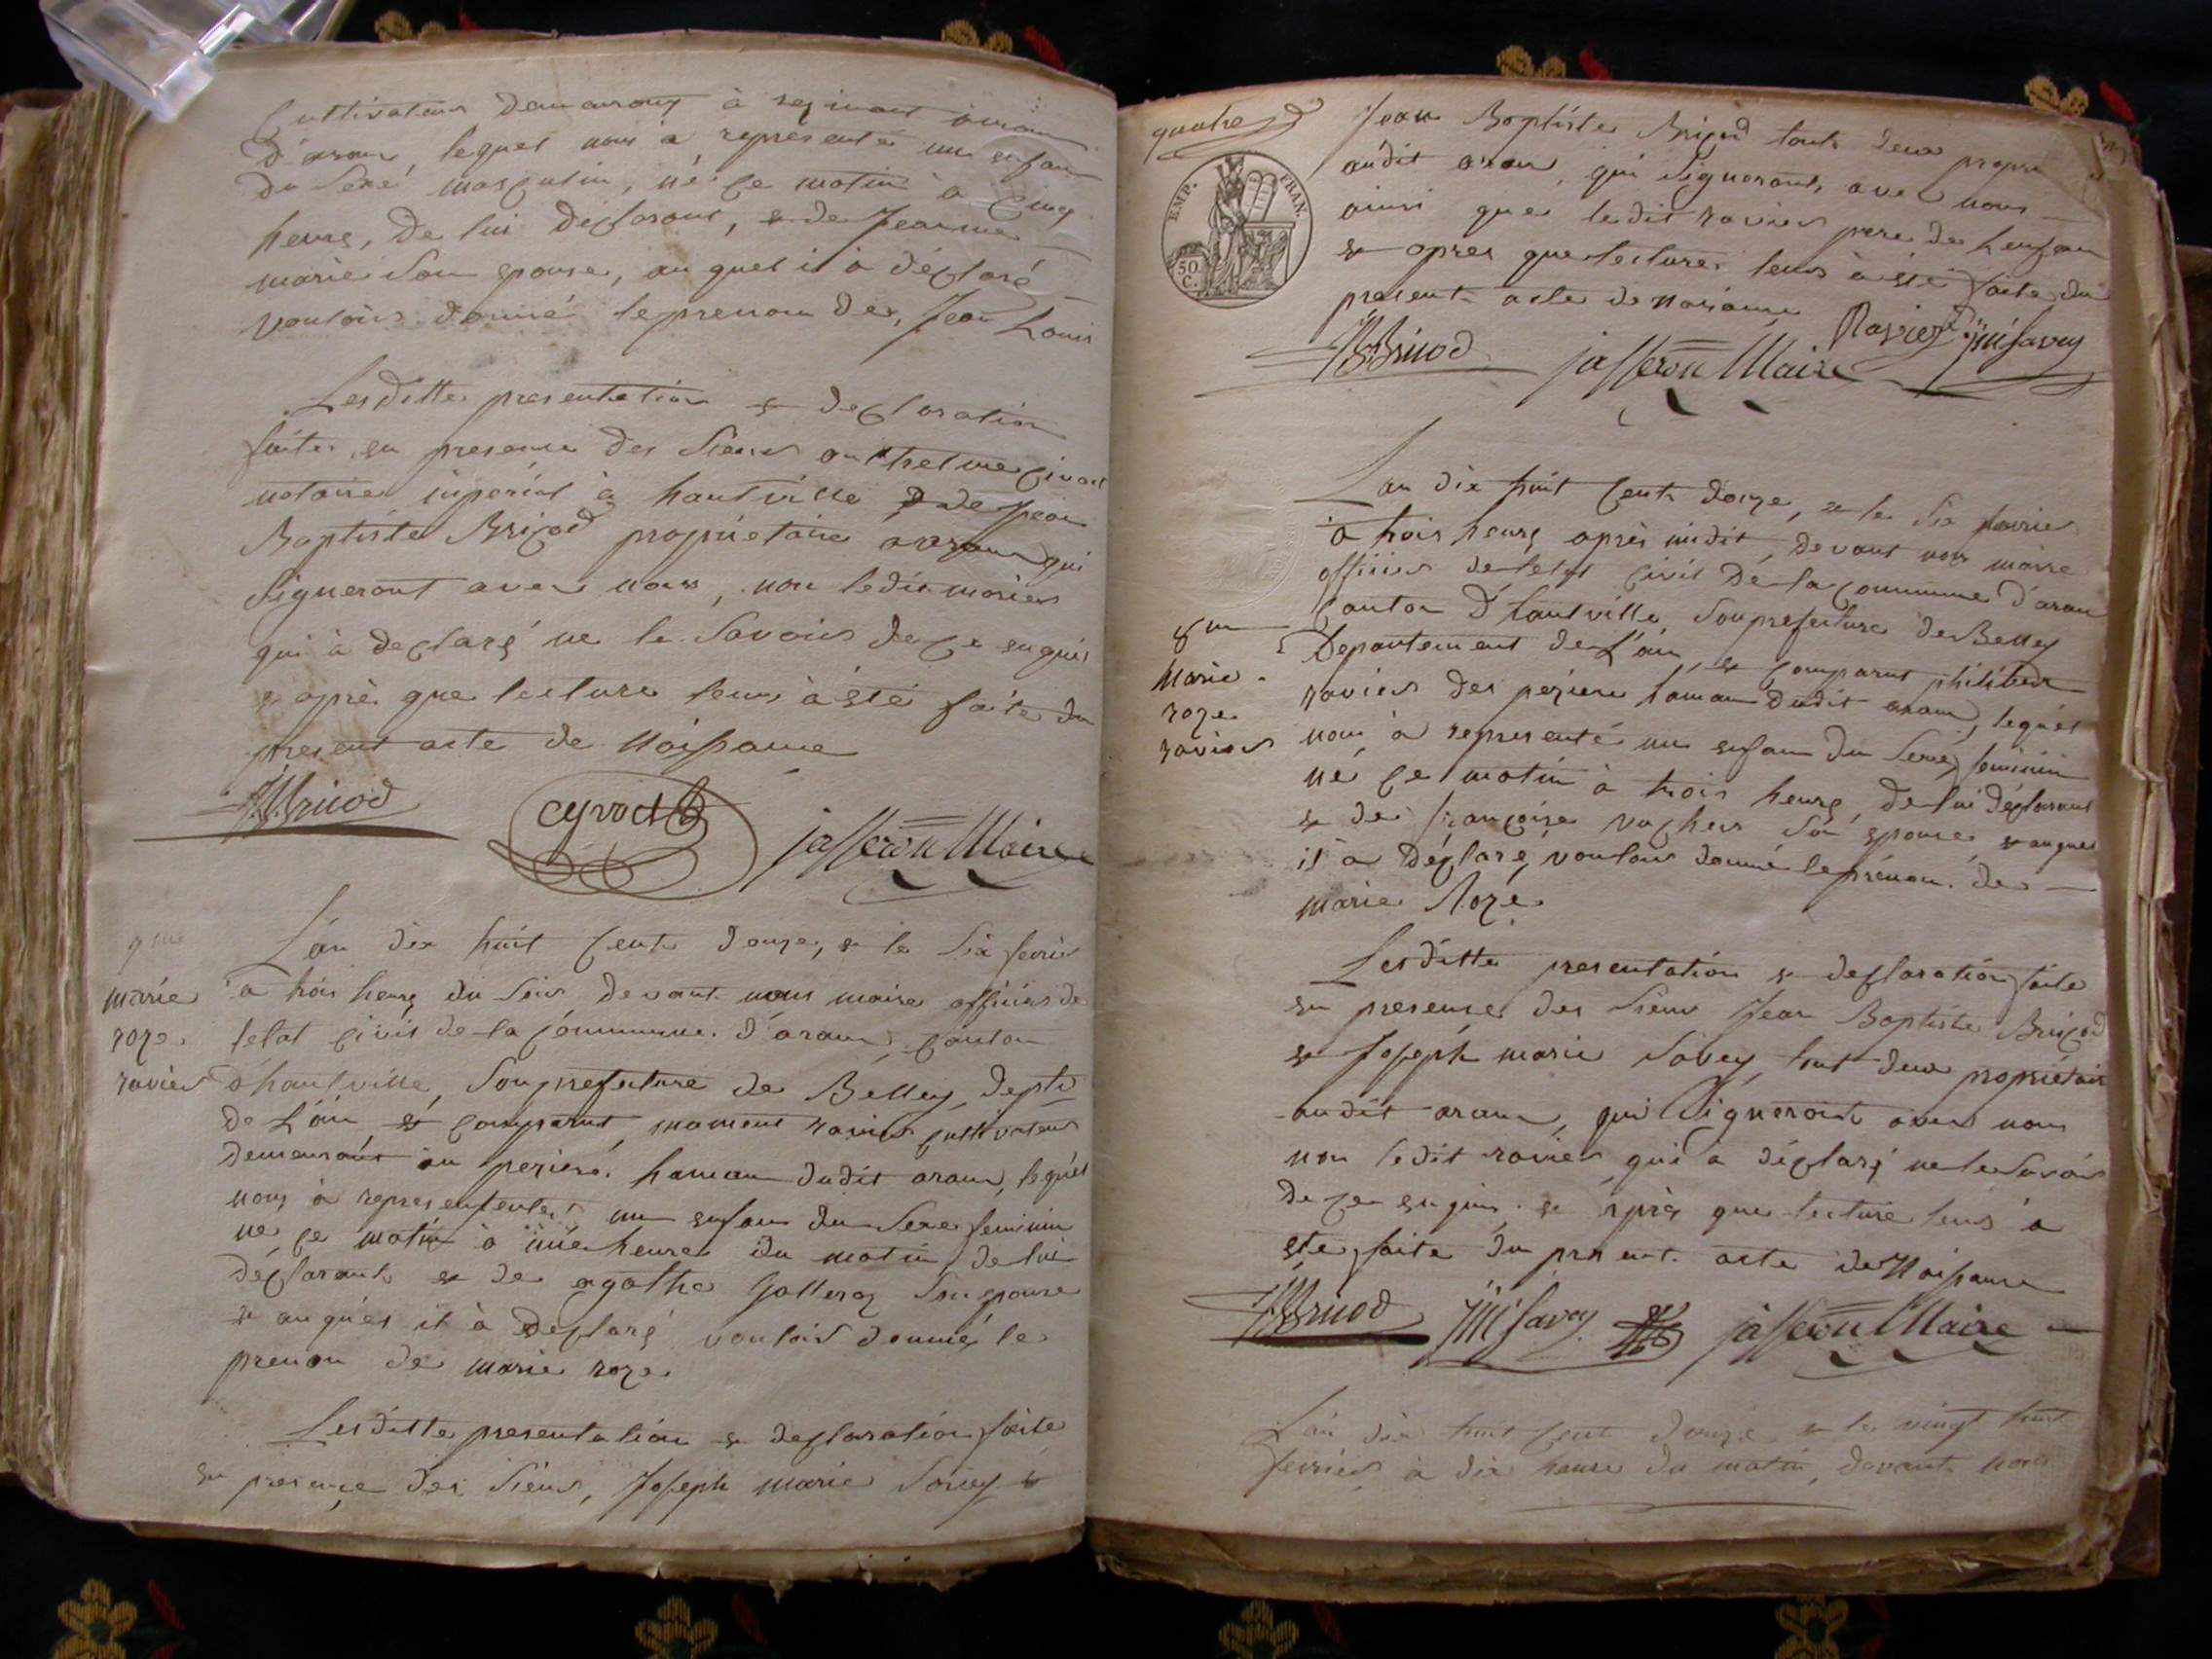 Cultivateur demeurant à
d'aranc, lequel nous a representé un enfan
du sexé masculin, né ce matin à cinq
heurs, de lui déclarant, & de Jeanne
marie son epouse, au quel il à déclaré
vouloir donné le prenom de, Jean Louis
Lesditte presentation & declaration
faite en presence des sieurs anthelme
notaire inperial à hautville & de Jean
Baptiste Bricod propriétaire qui
signeront avec nous, non ledit
qui à declaré ne le savoir de ce enquis
& aprè que lecture leur à été faite du
present acte de Naissance
JBBricod cyvoct jasseron Maire
L'an dix huit cent douze, & le six fevrier
à trois heurs du soir devant nous maire officier de
letat civil de la Commune d'aranc canton
d'hautville, Souprefecture de Belley, dept.
de L'ain est comparut, ravier cultivateur
demeurant au hamau dudit aranc, lequel
nous à representer un enfan du sexe feminin
né ce matin à une heure du matin, de lui
déclarant & de agathe son epouse
& auquel il à declaré vouloir donné le
prenom de marie roze
Lesditte presentation & declaration faite
en presence des sieurs, Joseph marie Savey &
7me
marie
roze
ravier
quatre
EMP. FRAN.
50 C.
Jean Baptiste Bricod touts deux
audit aranc, qui signeronts avec nous
ainsi que ledit ravier pere de L'enfan
& apres que lecture leurs à été faite du
present acte de naissance
JBBricod jasseron Maire Ravier JM Savey
L'an dix huit cent douze, & le six fevrier
à trois heurs après midit, devant nous maire
officier de letat civil de la commune d'aranc
canton d'hautville, Souprefecture de Belley
Departement de L'ain, est comparut philibert
ravier des hamau dudit aranc, lequel
nous à representé un enfan du sexe feminin
né ce matin à trois heurs, de lui déclarant
& de françoise son epouse & auquel
il a déclaré vouloir donné le prénom de
marie Roze
Lesditte presentation & declaration faite
en presence des sieur Jean Baptiste Bricod
& Joseph marie Savey tout deux propriétair
audit aranc, qui signeront avec nous
non ledit ravier qui a déclaré ne le savoir
de ce enquis & après que lecture leurs à
été faite du present acte de Naissance
JBBricod JM Savey jasseron Maire
8me
Marie
roze
ravier
L'an dix huit cent douze & le vingt huit
fevrier à dix heure du matin, devant nous